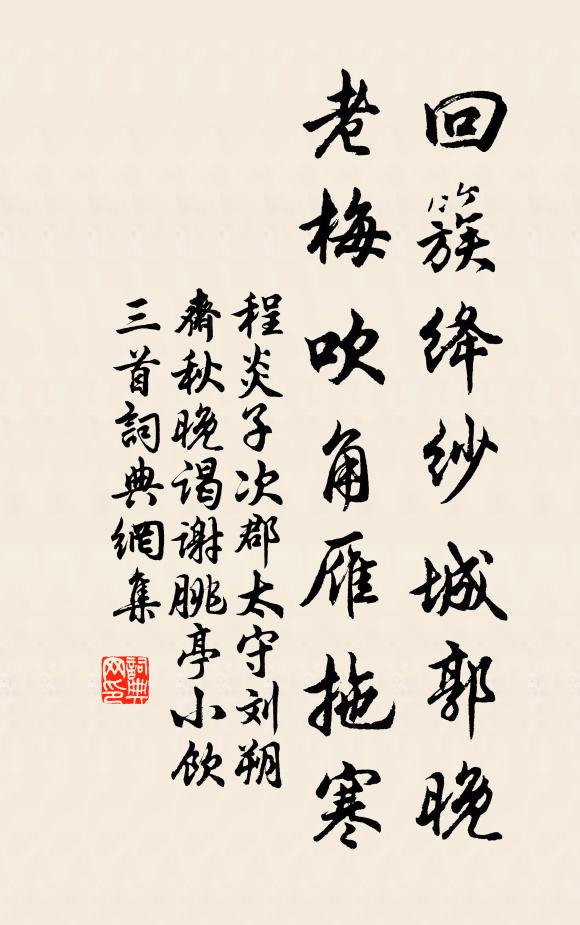 回簇绛纱城郭晚
老梅吹角雁拖寒
程炎子次郡太守刘朔
齋秋晚谒谢脁亭小饮
三首詞典網集
詞典网印